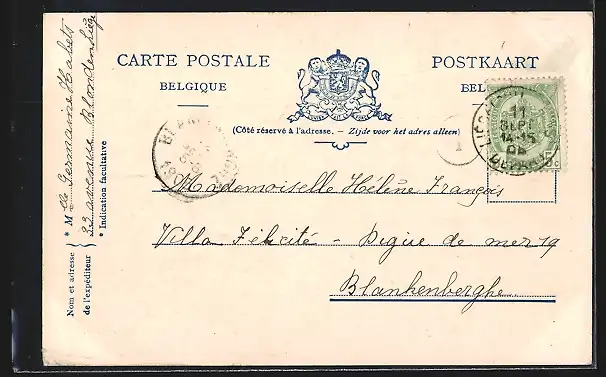 CARTE POSTALE
POSTKAART
BELGIQUE
(Côté réservé à l'adresse. — Zijde voor het adres alleen)
Mademoiselle Hélène François
Villa Félicité - Digue de mer 19
Blankenberghe.
Nom et adresse
de l'expéditeur
* Mlle Germaine Habets
22 avenue Blonden Liège
* Indication facultative
11
SEPT
1